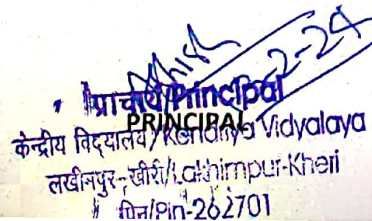 2-24
प्राचार्य/Principal
PRINCIPAL
केन्द्रीय विद्यालय/Kendriya Vidyalaya
लखीमपुर-खीरी/Lakhimpur-Kheri
पिन/Pin-262701